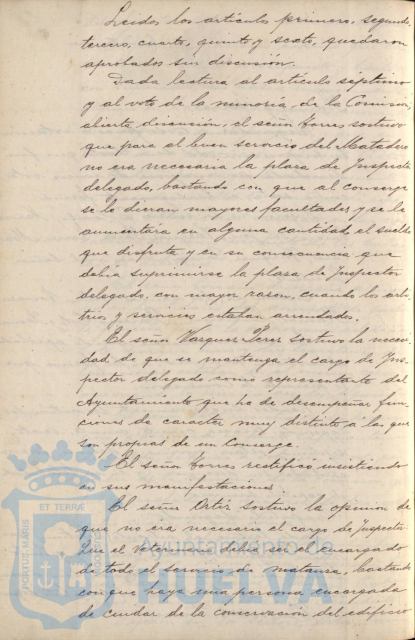 Leidos los artículos primero, segundo,
tercero, cuarto, quinto y sexto, quedaron
aprobados sin discusión.
Dada lectura al artículo séptimo
y al voto de la minoría, de la Comisión,
abierta discusión, el señor Torres sostuvo
que para el buen servicio del Matadero
no era necesaria la plaza de Inspector
delegado, bastando con que al conserge
se le dieran mayores facultades y se le
aumentara en alguna cantidad el sueldo
que disfruta y en su consecuencia que
debia suprimirse la plasa de Inspector
delegado, con mayor rason, cuando los arbi-
trios y servicios estaban arrendados.
El señor Vasques Peres sostuvo la necesi-
dad de que se mantenga el cargo de Ins-
pector delegado como representante del
Ayuntamiento que ha de desempeñar fun-
ciones de caracter muy distinto a las que
son propias de un Conserge.
El señor Torres rectificó insistiendo
en sus manifestaciones.
El señor Ortiz sostuvo la opinion de
que no era necesario el cargo de Inspector.
Que el Veterinario debia ser el encargado
de todo el servicio de matansa, bastando
con que haya una persona encargada
de cuidar de la conservación del edificio
PORTUS MARIS
ET TERRAE
Ayuntamiento de
HUELVA